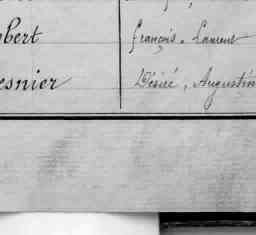 bert François, Laurent
esnier Désiré, Augustin